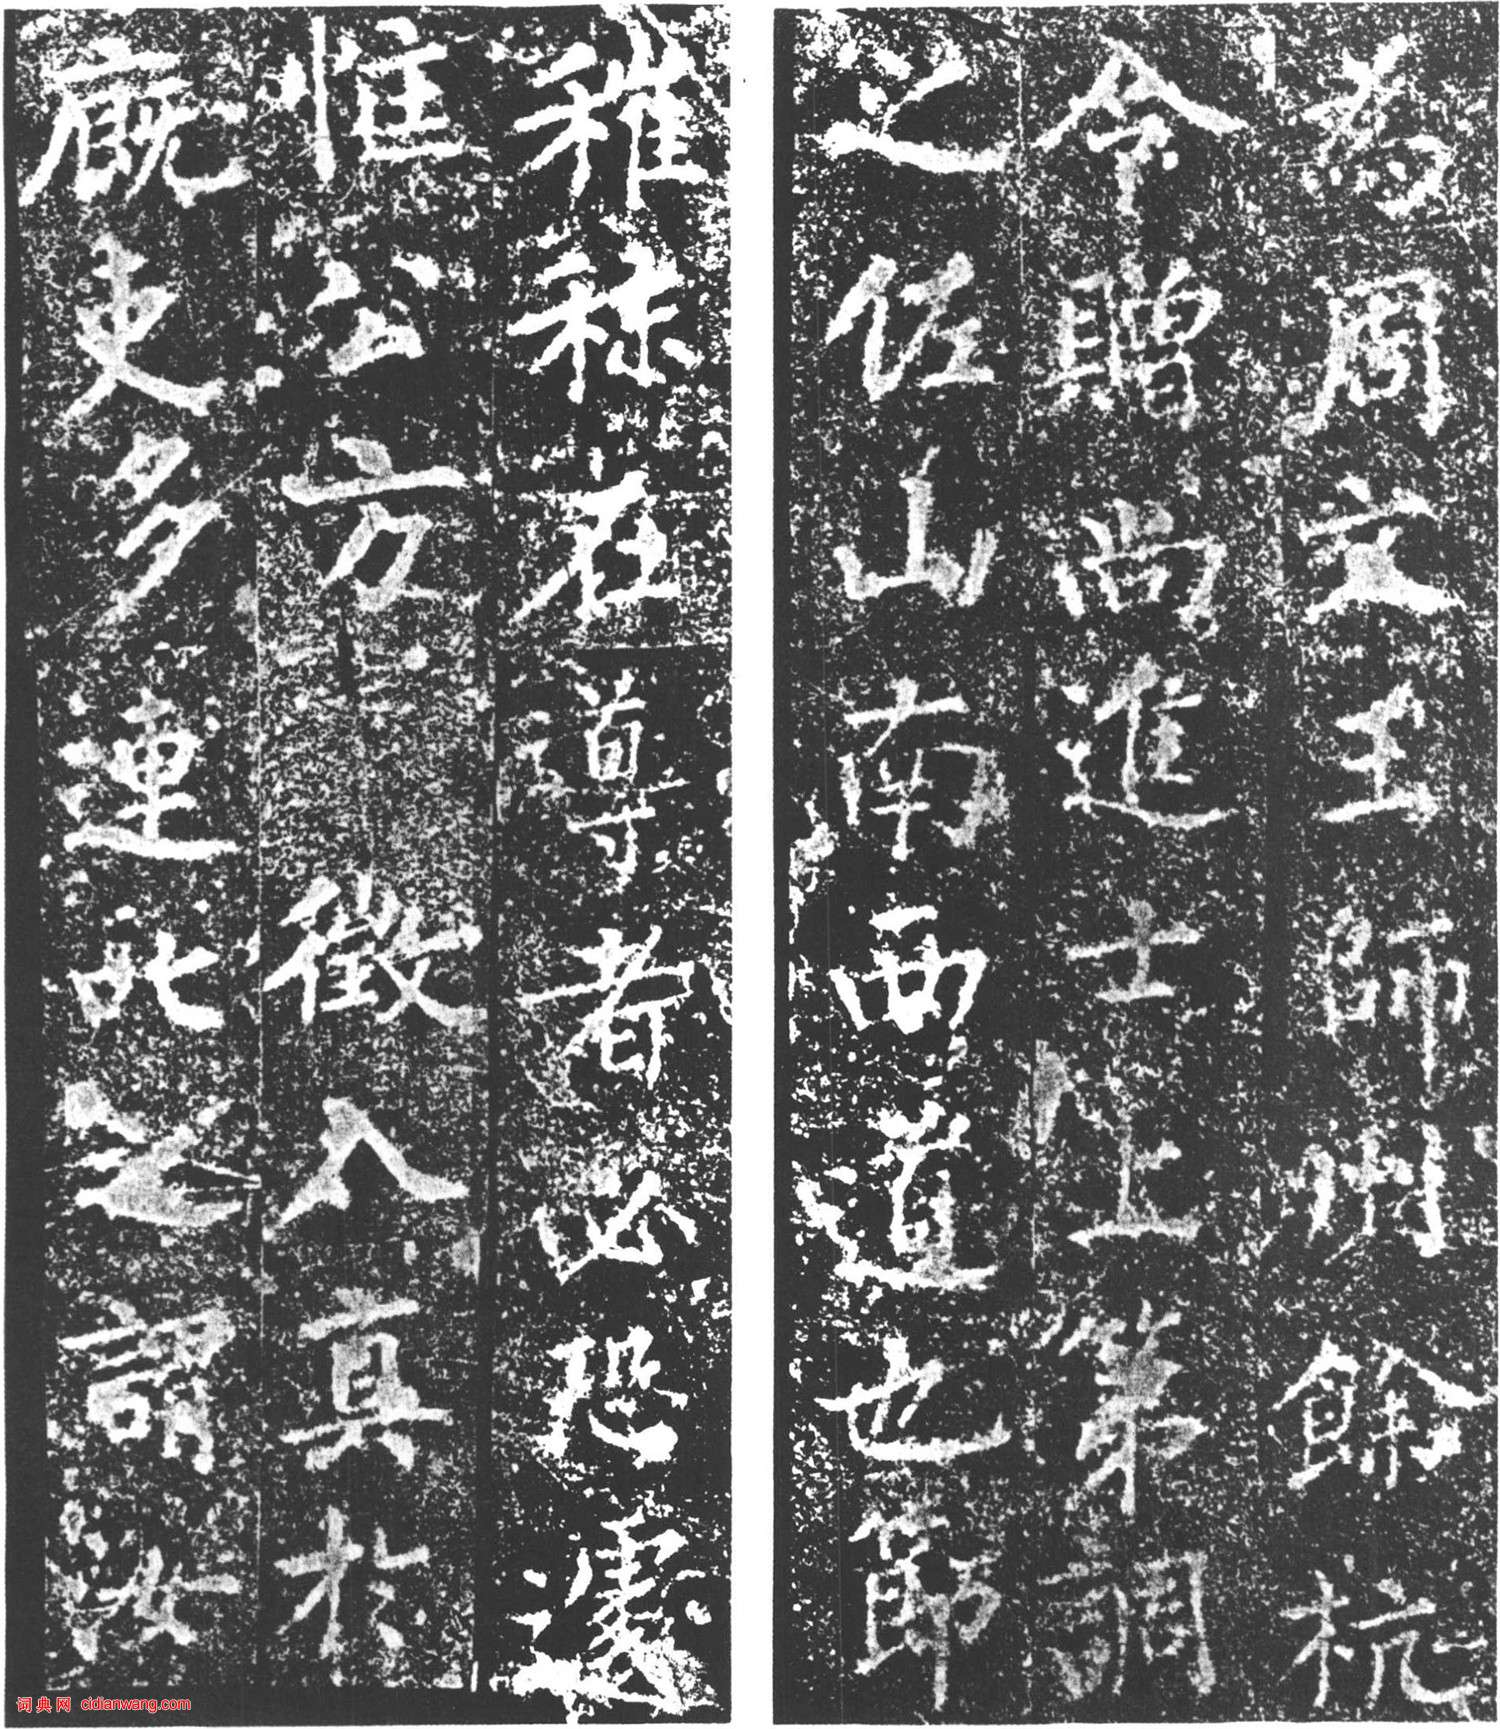 為周文王師州餘杭
令贈尚進士上第調
之佐山南西道也節
稚秫在尊者必恐遽
惟公方 徵入真於
廐吏多連此之謂
词典网 cidianwang.com